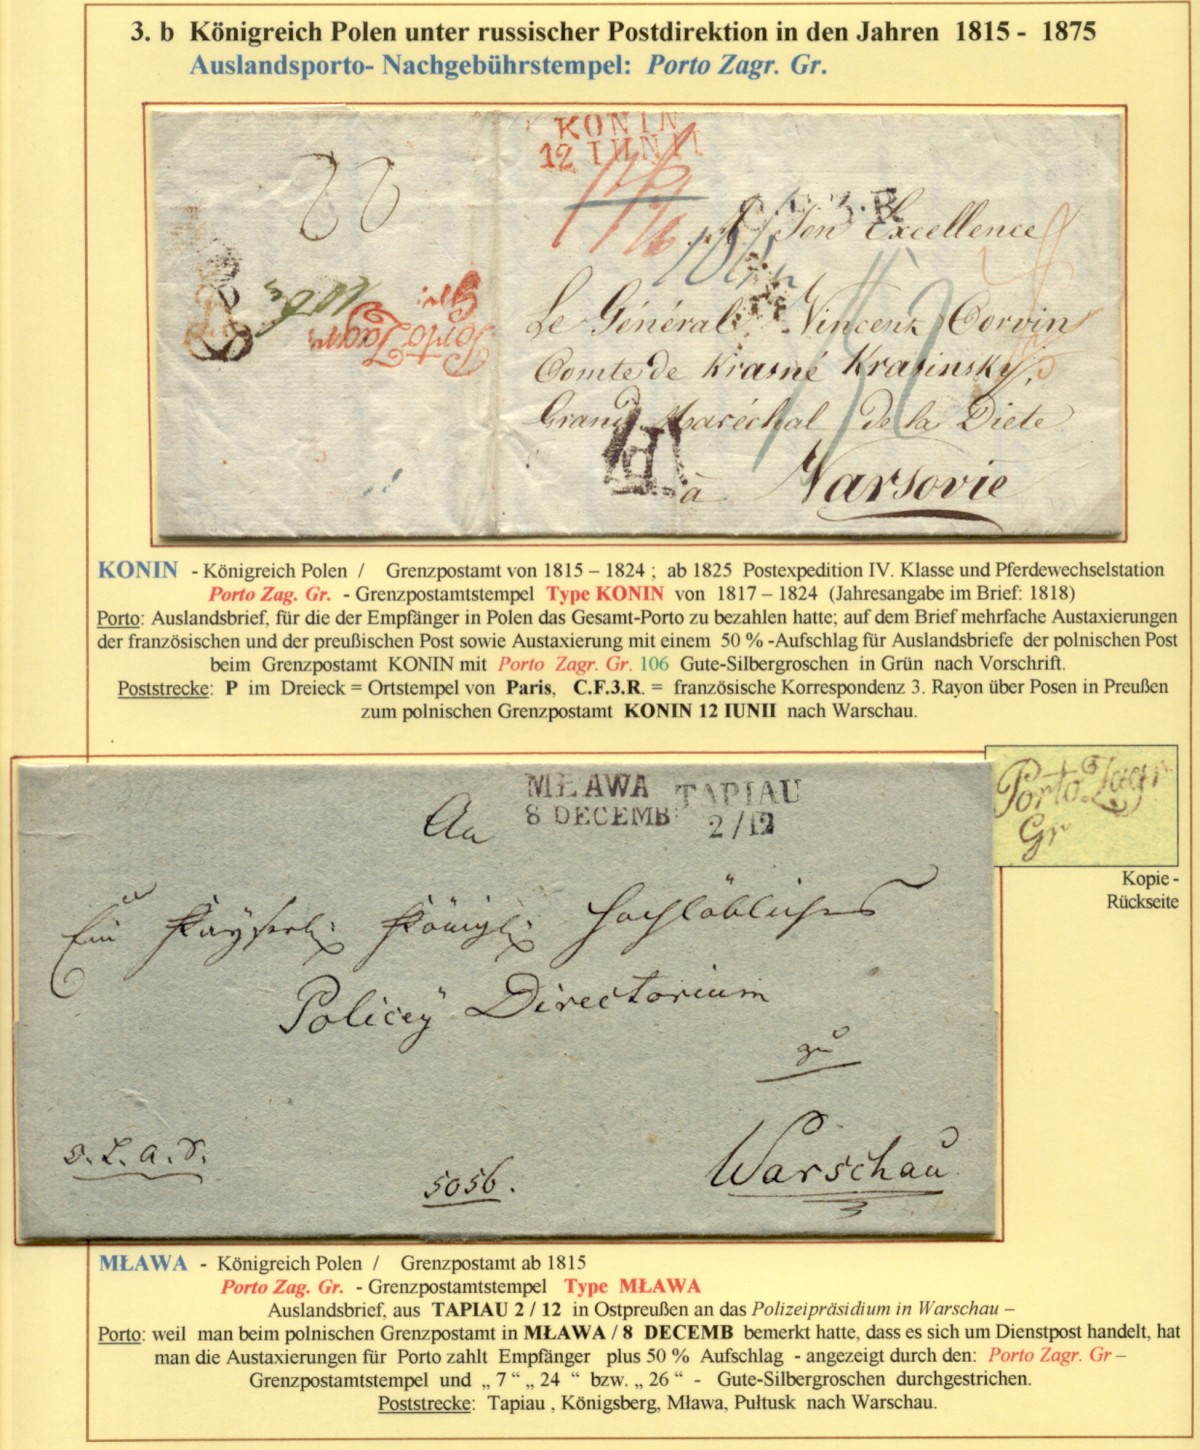 3. b Königreich Polen unter russischer Postdirektion in den Jahren 1815 - 1875
Auslandsporto- Nachgebührstempel: Porto Zagr. Gr.
KONIN
12 IUNII
C.F.3.R
Son Excellence
Le Général Vincent Corvin
Comte de Krasné Krasinsky,
Grand Maréchal de la Diete
à Varsovie
Porto Zagr:
Gr:
P
KONIN - Königreich Polen / Grenzpostamt von 1815 – 1824 ; ab 1825 Postexpedition IV. Klasse und Pferdewechselstation
Porto Zag. Gr. - Grenzpostamtstempel Type KONIN von 1817 – 1824 (Jahresangabe im Brief: 1818)
Porto: Auslandsbrief, für die der Empfänger in Polen das Gesamt-Porto zu bezahlen hatte; auf dem Brief mehrfache Austaxierungen
der französischen und der preußischen Post sowie Austaxierung mit einem 50 % -Aufschlag für Auslandsbriefe der polnischen Post
beim Grenzpostamt KONIN mit Porto Zagr. Gr. 106 Gute-Silbergroschen in Grün nach Vorschrift.
Poststrecke: P im Dreieck = Ortstempel von Paris, C.F.3.R. = französische Korrespondenz 3. Rayon über Posen in Preußen
zum polnischen Grenzpostamt KONIN 12 IUNII nach Warschau.
MŁAWA
8 DECEMB:
TAPIAU
2 / 12
Porto Zagr
Gr
Kopie -
Rückseite
An
Ein Kayserl: Königl: Hochlöbliches
Policey Directorium
zu
Warschau
5056.
MŁAWA - Königreich Polen / Grenzpostamt ab 1815
Porto Zag. Gr. - Grenzpostamtstempel Type MŁAWA
Auslandsbrief, aus TAPIAU 2 / 12 in Ostpreußen an das Polizeipräsidium in Warschau –
Porto: weil man beim polnischen Grenzpostamt in MŁAWA / 8 DECEMB bemerkt hatte, dass es sich um Dienstpost handelt, hat
man die Austaxierungen für Porto zahlt Empfänger plus 50 % Aufschlag - angezeigt durch den: Porto Zagr. Gr –
Grenzpostamtstempel und „ 7 “ „ 24 “ bzw. „ 26 “ - Gute-Silbergroschen durchgestrichen.
Poststrecke: Tapiau , Königsberg, Mława, Pułtusk nach Warschau.